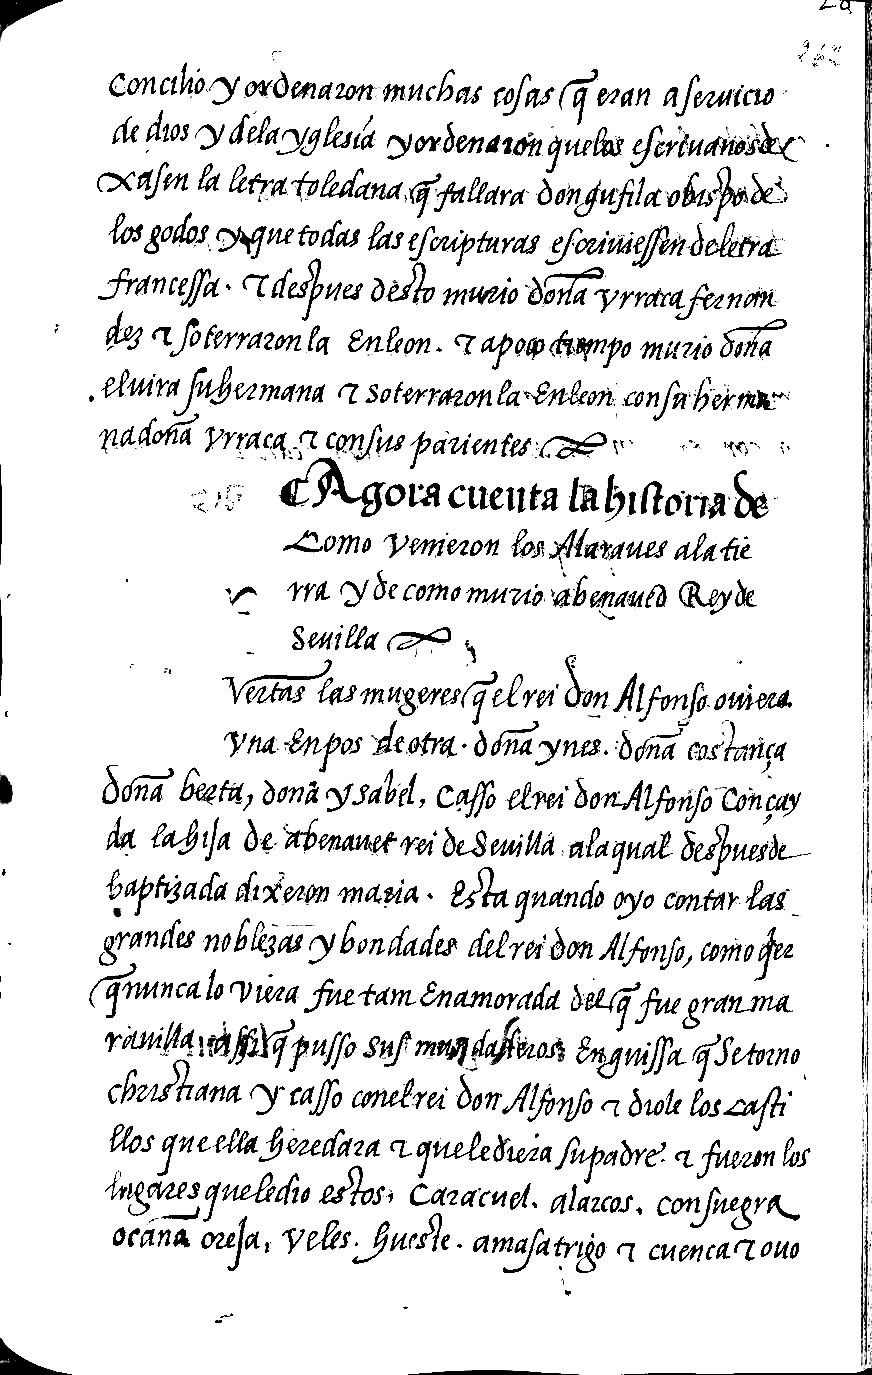 Concilio y ordenaron muchas cosas q̃ eran a seruicio
de dios y dela yglesia y ordenaron quelos escriuanos de
xasen la letra toledana q̃ fallara don gufila obispo de
los godos y que todas las escripturas escriuiessen de letra
francessa. τ despues desto murio doña yrraca fernan
dez τ soterraron la Enleon. τ apoco tiempo murio doña
eluira su hermana τ soterraron la Enleon con su herma
na doña yrraca τ consus parientes
Agora cuenta la historia de
Como venieron los Alaraues ala tie
rra y de como murio abenaued Rey de
Seuilla
Vertas las mugeres q̃ el rei don Alfonso ouiera
vna Enpos de otra. doña ynes. doña costança
doña berta, doña ysabel, Casso el rei don Alfonso Con çay
da la hija de abenauet rei de Seuilla ala qual despues de
baptizada dixeron maria. Esta quando oyo contar las
grandes noblezas y bondades del rei don Alfonso, como q̃er
q̃ nunca lo viera fue tam Enamorada del q̃ fue gran ma
rauilla assi q̃ pusso sus mandasseros Enguissa q̃ Se torno
christiana y casso conel rei don Alfonso τ diole los casti
llos que ella heredara τ que le diera su padre. τ fueron los
lugares que le dio estos, Caracuel. alarcos, consuegra
ocaña oreja, veles. hueste. amasatrigo τ cuenca τ ouo